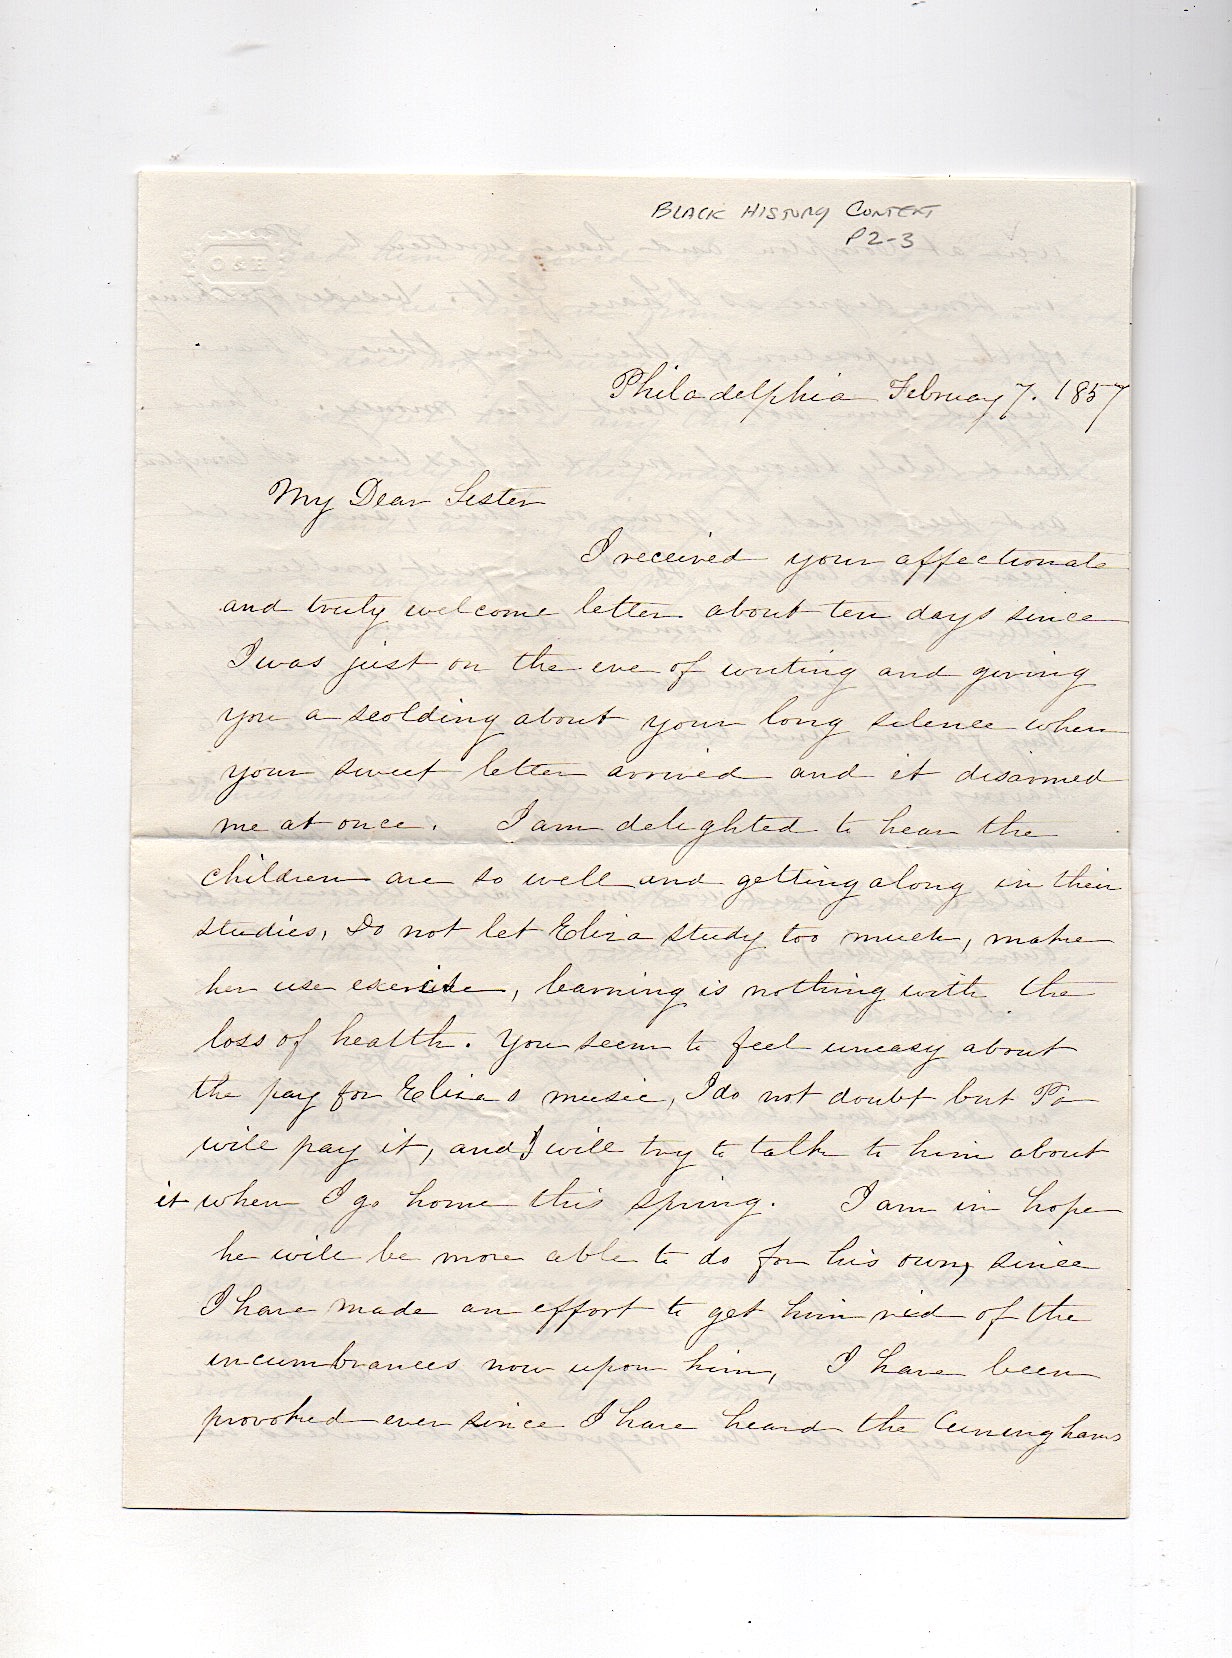 BLACK HISTORY CONTEXT
P2-3
Philadelphia February 7. 1857
My Dear Sister
I received your affectionate
and truly welcome letter about ten days since
I was just on the eve of writing and giving
you a scolding about your long silence when
your sweet letter arrived and it disarmed
me at once. I am delighted to hear the
children are so well and getting along in their
studies, Do not let Eliza study too much, make
her use exercise, learning is nothing with the
loss of health. You seem to feel uneasy about
the pay for Elizas music, I do not doubt but Pa
will pay it, and I will try to talk to him about
it when I go home this spring. I am in hope
he will be more able to do for his own, since
I have made an effort to get him rid of the
incumbrances now upon him, I have been
provoked ever since I have heard the Cuninghams